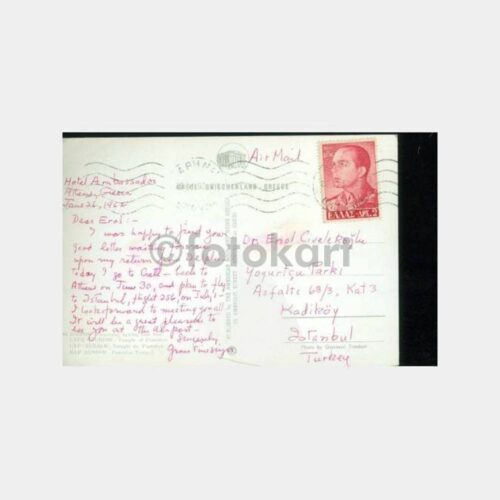 Air Mail
GRIECHENLAND - GREECE
Hotel Ambassador
Athens, Greece
June 26, 196
Dear Erol:-
I was happy to find your
good letter waiting
upon my return
Today I go to Crete - back to
Athens on June 30, and plan to fly
to Istanbul, flight 256, on July 1-
I look forward to meeting you all
It will be a great pleasure to
see you at the airport-
Sincerely
ΕΛΛΑΣ ΔΡ. 2
Dr. Erol Civelekoğlu
Yogurtçu Parkı
Asfaltı 68/3, Kat 3
Kadiköy
Istanbul
Turkey
©fotokart